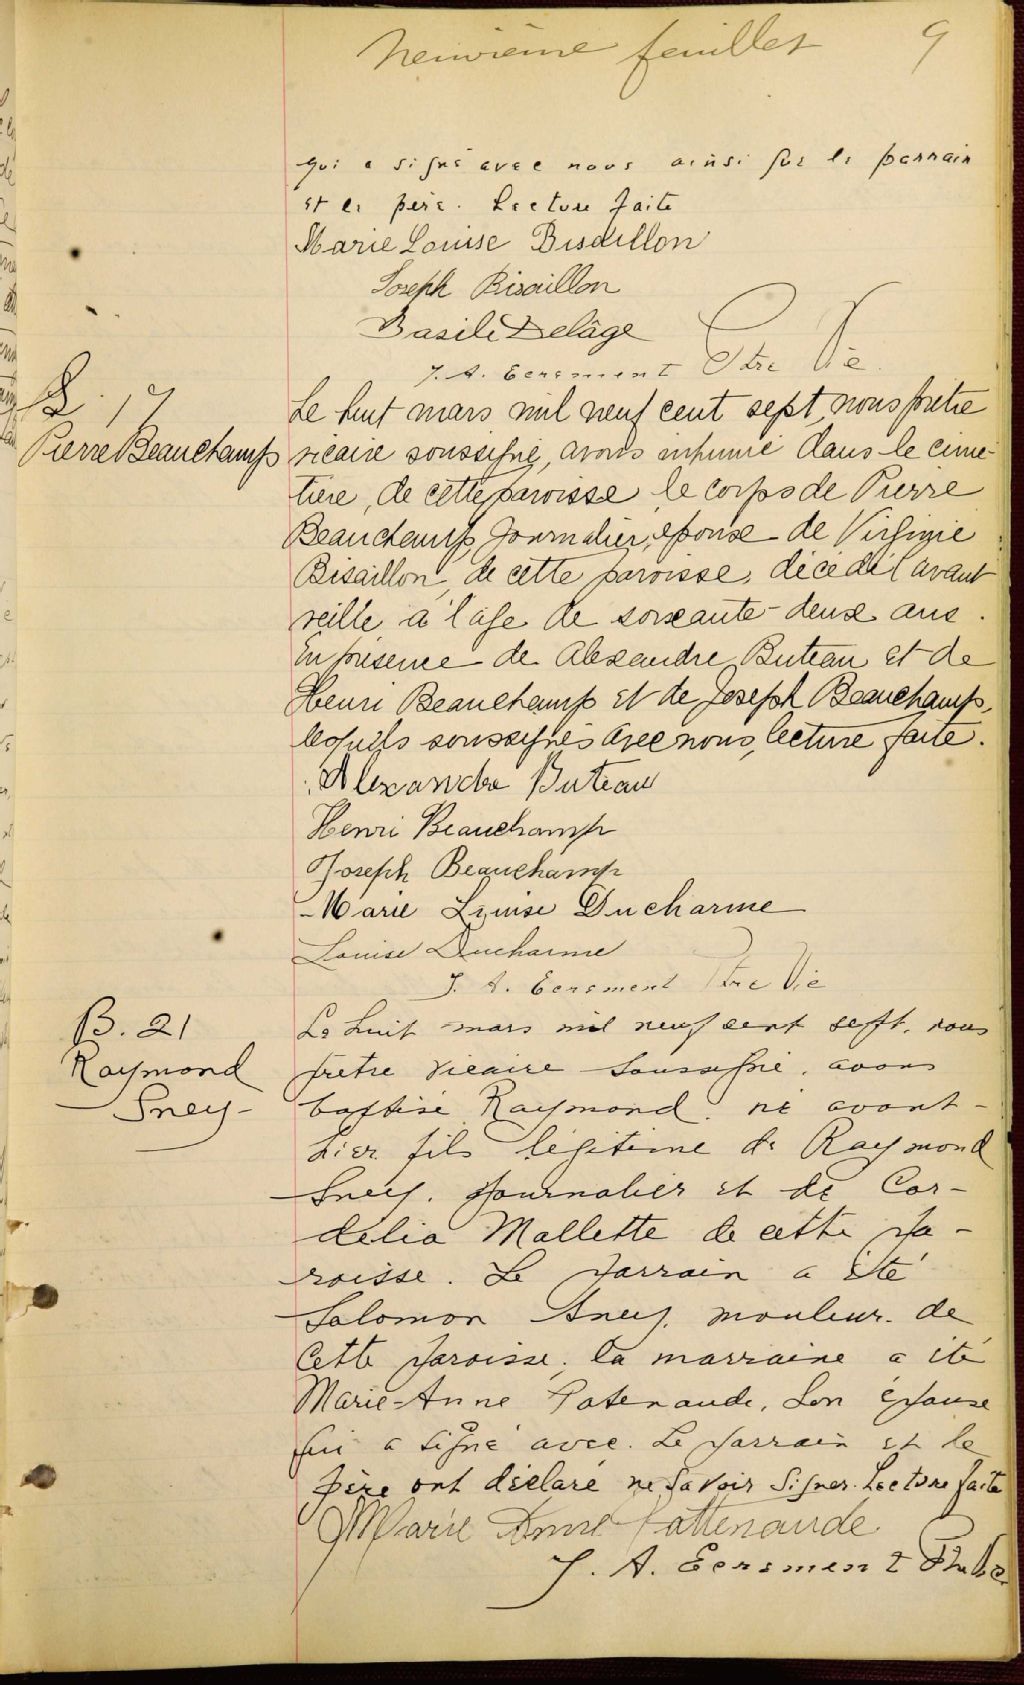 neuvième feuillet 9
qui a signé avec nous ainsi que le parrain
et le père. Lecture faite
Marie Louise Bisaillon
Joseph Bisaillon
Basile Delâge
J. A. Ecrement Ptre Vic.
S. 17
Pierre Beauchamp
Le huit mars mil neuf cent sept, nous prêtre
vicaire soussigné, avons inhumé dans le cime-
tière, de cette paroisse, le corps de Pierre
Beauchamp, Journalier, épouse de Virginie
Bisaillon, de cette paroisse, décédé l'avant
veille à l'age de soixante-deux ans.
En présence de Alexandre Buteau et de
Henri Beauchamp et de Joseph Beauchamp,
lesquels soussignés avec nous, lecture faite.
Alexandre Buteau
Henri Beauchamp
Joseph Beauchamp
Marie Louise Ducharme
Louise Ducharme
J. A. Ecrement Ptre Vic
B. 21
Raymond
Sney
Le huit mars mil neuf cent sept, nous
prêtre vicaire soussigné, avons
baptisé Raymond, né avant-
hier fils légitime de Raymond
Sney, journalier et de Cor-
délia Mallette de cette pa-
roisse. Le parrain a été
Salomon Sney, mouleur de
cette paroisse, la marraine a été
Marie-Anne Patenaude, son épouse
qui a signé avec. Le parrain et le
père ont déclaré ne savoir signer. Lecture faite
Marie Anne Pattenaude
J. A. Ecrement Ptre Vic